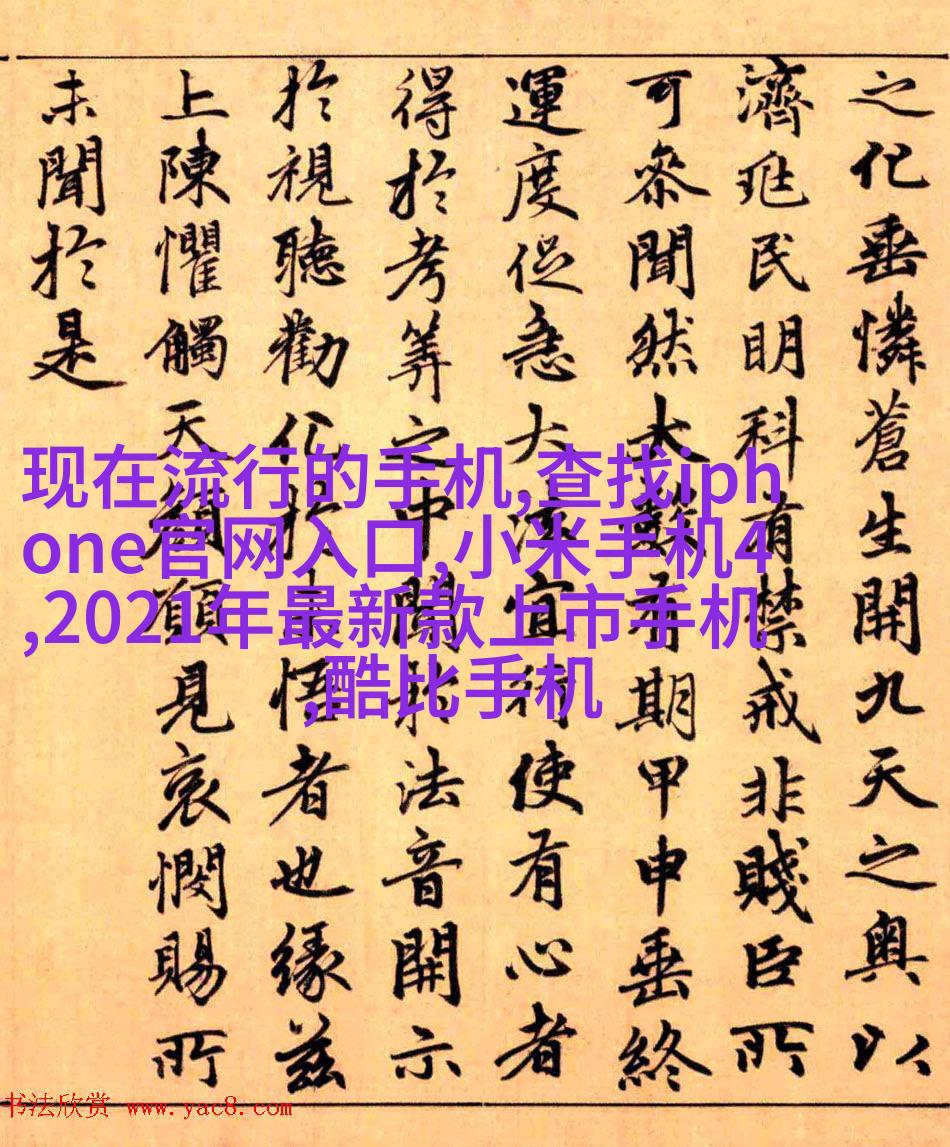 之化垂憐蒼生開九天之奧以
濟兆民明科有禁戒非賤臣所
可叅聞然大數期甲申垂終
運度促急大法宜行使有心者
得於考筭之中聞於法音開示
於視聽勸化於未悟者也緣茲
上陳懼觸天網願見哀憫賜所
未聞於是
现在流行的手机,查找iph
one官网入口,小米手机4
,2021年最新款上市手机
,酷比手机
书法欣赏 www.yac8.com